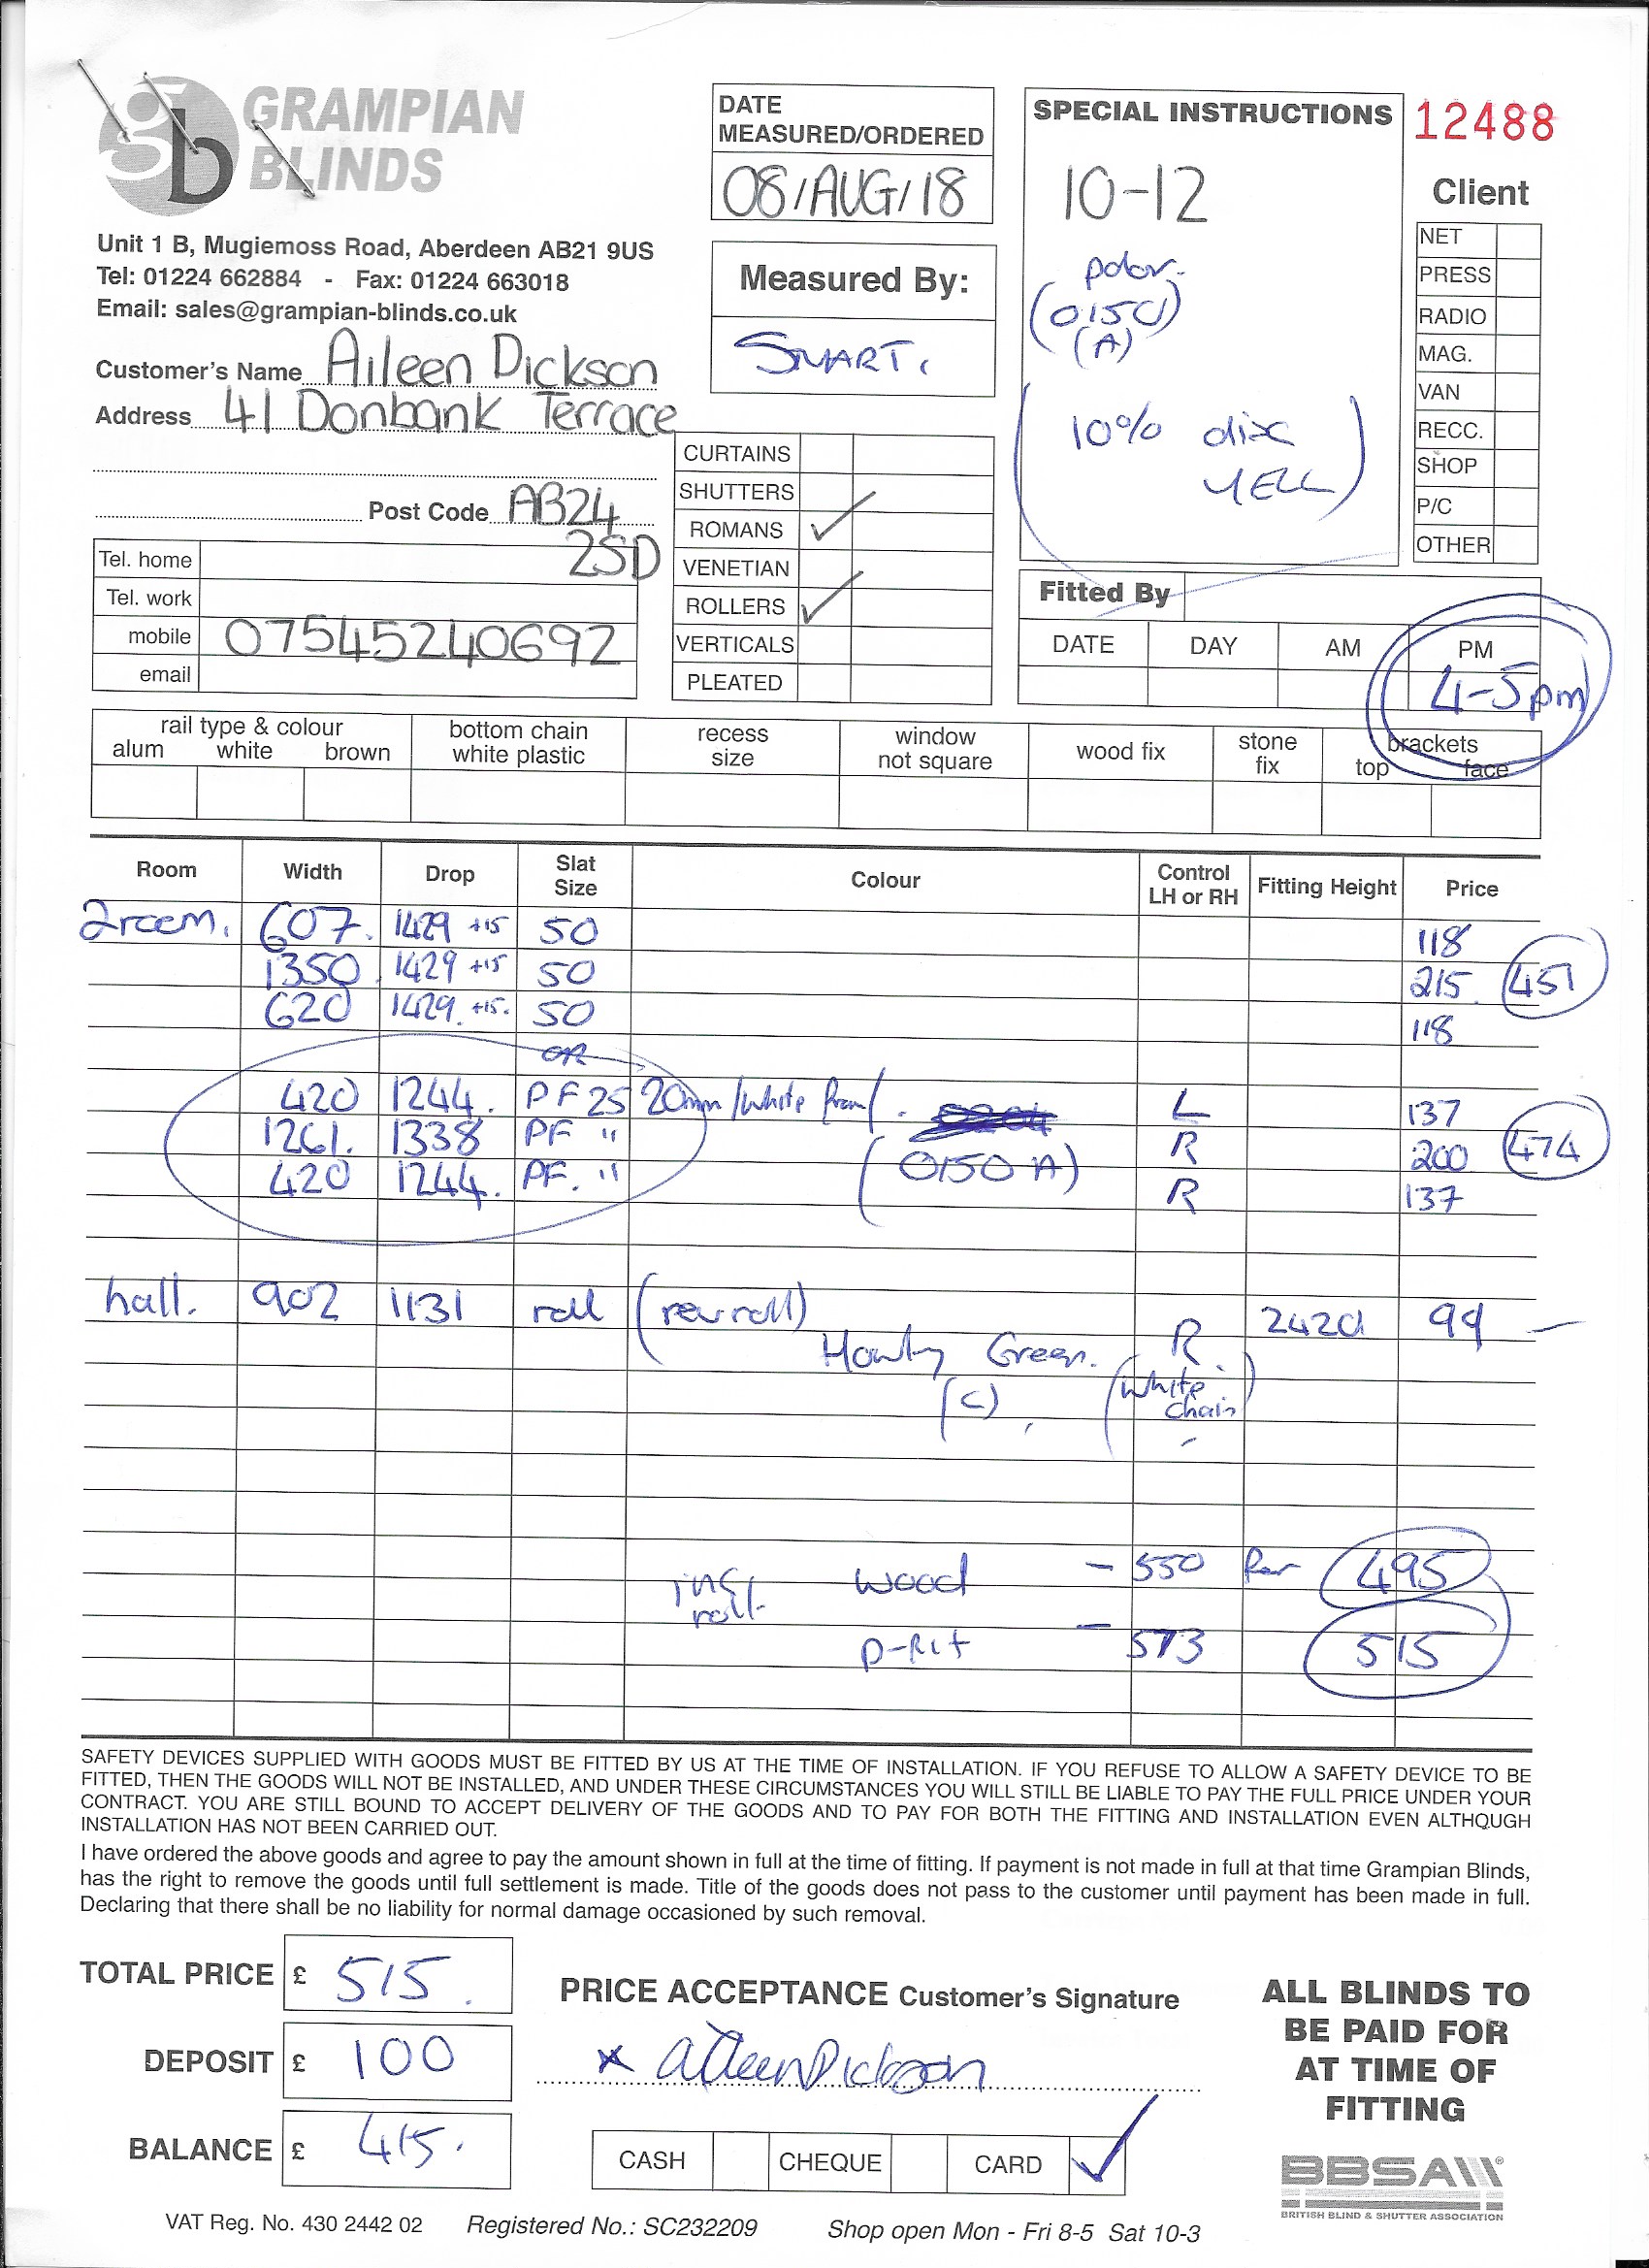 gb GRAMPIAN BLINDS
Unit 1 B, Mugiemoss Road, Aberdeen AB21 9US
Tel: 01224 662884 - Fax: 01224 663018
Email: sales@grampian-blinds.co.uk
Customer's Name Aileen Dickson
Address 41 Donbank Terrace
Post Code AB24 2SD
Tel. home
Tel. work
mobile 07545240692
email
DATE
MEASURED/ORDERED
08/AUG/18
Measured By:
SMART.
CURTAINS
SHUTTERS
ROMANS ✓
VENETIAN
ROLLERS ✓
VERTICALS
PLEATED
SPECIAL INSTRUCTIONS
10-12
(A)
10% disc
YELL
12488
Client
NET
PRESS
RADIO
MAG.
VAN
RECC.
SHOP
P/C
OTHER
Fitted By
DATE DAY AM PM
4-5pm
rail type & colour
alum white brown
bottom chain
white plastic
recess
size
window
not square
wood fix
stone
fix
brackets
top face
Room Width Drop Slat Size Colour Control LH or RH Fitting Height Price
607. 1429 +15 50 118
1350. 1429 +15 50 215 451
620 1429. +15. 50 118
OR
420 1244. PF 25 20mm/White L 137
1261. 1338 PF " R 200 474
(0150 A)
420 1244. PF. " R 137
hall. 902 1131 roll 2420 99
Green. R
(C) (White
chain)
wood - 550 for 495
inc
roll.
- 573 515
SAFETY DEVICES SUPPLIED WITH GOODS MUST BE FITTED BY US AT THE TIME OF INSTALLATION. IF YOU REFUSE TO ALLOW A SAFETY DEVICE TO BE
FITTED, THEN THE GOODS WILL NOT BE INSTALLED, AND UNDER THESE CIRCUMSTANCES YOU WILL STILL BE LIABLE TO PAY THE FULL PRICE UNDER YOUR
CONTRACT. YOU ARE STILL BOUND TO ACCEPT DELIVERY OF THE GOODS AND TO PAY FOR BOTH THE FITTING AND INSTALLATION EVEN ALTHOUGH
INSTALLATION HAS NOT BEEN CARRIED OUT.
I have ordered the above goods and agree to pay the amount shown in full at the time of fitting. If payment is not made in full at that time Grampian Blinds,
has the right to remove the goods until full settlement is made. Title of the goods does not pass to the customer until payment has been made in full.
Declaring that there shall be no liability for normal damage occasioned by such removal.
TOTAL PRICE £ 515.
DEPOSIT £ 100
BALANCE £ 415.
PRICE ACCEPTANCE Customer's Signature
x Aileen Dickson
CASH CHEQUE CARD ✓
ALL BLINDS TO
BE PAID FOR
AT TIME OF
FITTING
BBSA
BRITISH BLIND & SHUTTER ASSOCIATION
VAT Reg. No. 430 2442 02 Registered No.: SC232209 Shop open Mon - Fri 8-5 Sat 10-3